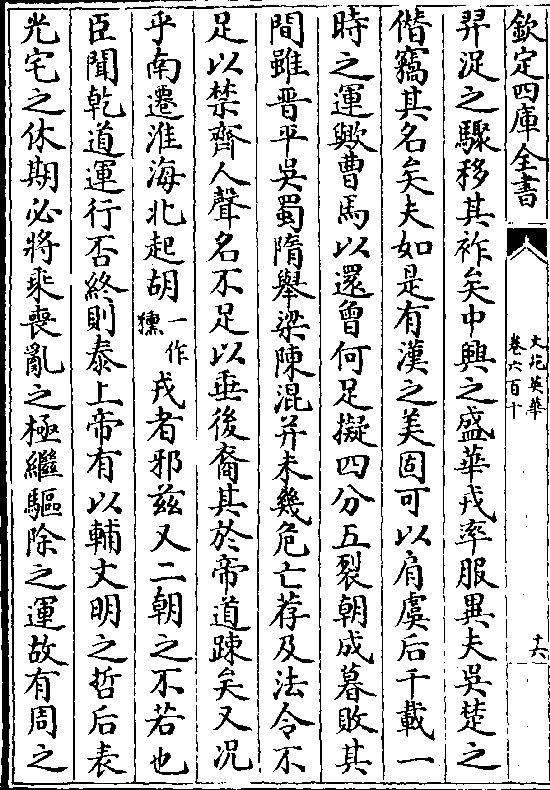 欽定四庫全書
文苑英華
卷六百十
十六
羿浞之驟移其祚矣中興之盛華戎率服異夫吳楚之
僭竊其名矣夫如是有漢之美固可以肩虞后千載一
時之運歟曹馬以還曾何足擬四分五裂朝成暮敗其
間雖晋平吳蜀隋舉梁陳混并未幾危亡荐及法令不
足以禁齊人聲名不足以垂後裔其於帝道踈矣又况
乎南遷淮海北起胡一作獯戎者邪兹又二朝之不若也
臣聞乾道運行否終則泰上帝有以輔文明之哲后表
光宅之休期必將乘喪亂之極繼驅除之運故有周之